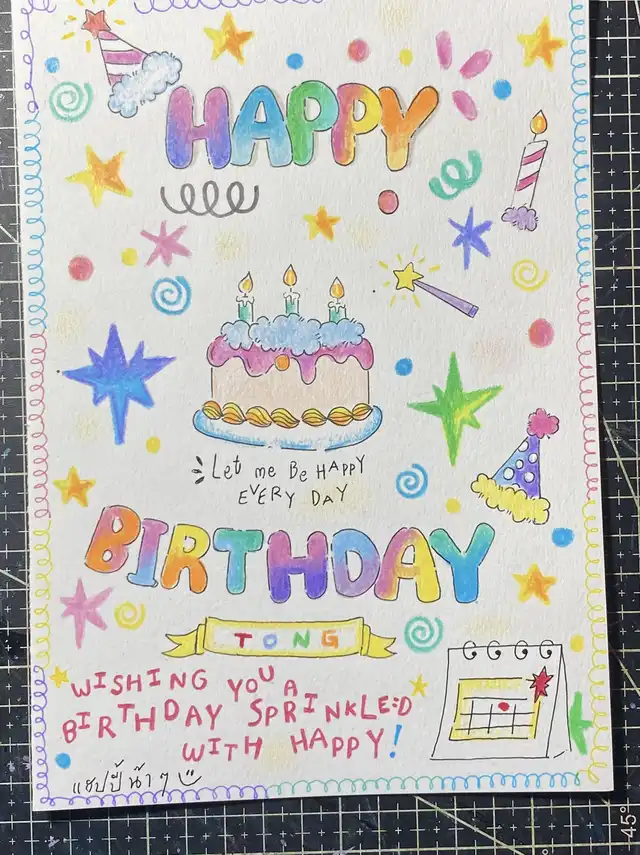 HAPPY
Let me Be HAPPY
EVERY DAY
BIRTHDAY
TONG
WISHING YOU A
BIRTHDAY SPRINKLE:D
WITH HAPPY!
แฮปปี้ น๊า ๆ
45°